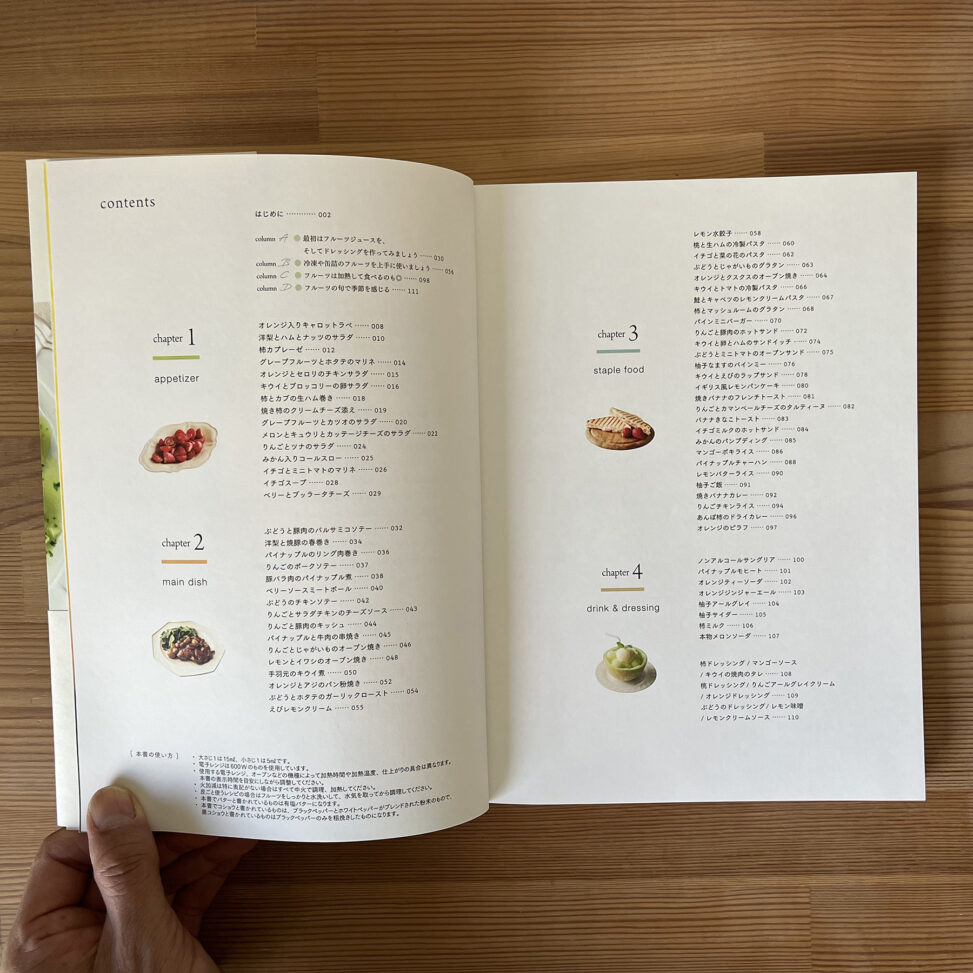 contents
はじめに ………… 002
column A 最初はフルーツジュースを、
そしてドレッシングを作ってみましょう …… 030
column B 冷凍や缶詰のフルーツを上手に使いましょう …… 056
column C フルーツは加熱して食べるのも◎ …… 098
column D フルーツの旬で季節を感じる …… 111
chapter 1
appetizer
オレンジ入りキャロットラペ …… 008
洋梨とハムとナッツのサラダ …… 010
柿カプレーゼ …… 012
グレープフルーツとホタテのマリネ …… 014
オレンジとセロリのチキンサラダ …… 015
キウイとブロッコリーの卵サラダ …… 016
柿とカブの生ハム巻き …… 018
焼き柿のクリームチーズ添え …… 019
グレープフルーツとカツオのサラダ …… 020
メロンとキュウリとカッテージチーズのサラダ …… 022
りんごとツナのサラダ …… 024
みかん入りコールスロー …… 025
イチゴとミニトマトのマリネ …… 026
イチゴスープ …… 028
ベリーとブッラータチーズ …… 029
chapter 2
main dish
ぶどうと豚肉のバルサミコソテー …… 032
洋梨と焼豚の春巻き …… 034
パイナップルのリング肉巻き …… 036
りんごのポークソテー …… 037
豚バラ肉のパイナップル煮 …… 038
ベリーソースミートボール …… 040
ぶどうのチキンソテー …… 042
りんごとサラダチキンのチーズソース …… 043
りんごと豚肉のキッシュ …… 044
パイナップルと牛肉の串焼き …… 045
りんごとじゃがいものオーブン焼き …… 046
レモンとイワシのオーブン焼き …… 048
手羽元のキウイ煮 …… 050
オレンジとアジのパン粉焼き …… 052
ぶどうとホタテのガーリックロースト …… 054
えびレモンクリーム …… 055
[ 本書の使い方 ]
・ 大さじ1は15㎖、小さじ1は5㎖です。
・ 電子レンジは600Wのものを使用しています。
・ 使用する電子レンジ、オーブンなどの機種によって加熱時間や加熱温度、仕上がりの具合は異なります。
本書の表示時間を目安にしながら調整してください。
・ 火加減は特に表記がない場合はすべて中火で調理、加熱してください。
・ 皮ごと使うレシピの場合はフルーツをしっかりと水洗いして、水気を取ってから調理してください。
・ 本書でバターと書かれているものは有塩バターになります。
・ 本書でコショウと書かれているものは、ブラックペッパーとホワイトペッパーがブレンドされた粉末のもので、
黒コショウと書かれているものはブラックペッパーのみを粗挽きしたものになります。
chapter 3
staple food
レモン水餃子 …… 058
桃と生ハムの冷製パスタ …… 060
イチゴと菜の花のパスタ …… 062
ぶどうとじゃがいものグラタン …… 063
オレンジとクスクスのオーブン焼き …… 064
キウイとトマトの冷製パスタ …… 066
鮭とキャベツのレモンクリームパスタ …… 067
柿とマッシュルームのグラタン …… 068
パインミニバーガー …… 070
りんごと豚肉のホットサンド …… 072
キウイと卵とハムのサンドイッチ …… 074
ぶどうとミニトマトのオープンサンド …… 075
柚子なますのバインミー …… 076
キウイとえびのラップサンド …… 078
イギリス風レモンパンケーキ …… 080
焼きバナナのフレンチトースト …… 081
りんごとカマンベールチーズのタルティーヌ …… 082
バナナきなこトースト …… 083
イチゴミルクのホットサンド …… 084
みかんのパンプディング …… 085
マンゴーポキライス …… 086
パイナップルチャーハン …… 088
レモンバターライス …… 090
柚子ご飯 …… 091
焼きバナナカレー …… 092
りんごチキンライス …… 094
あんぽ柿のドライカレー …… 096
オレンジのピラフ …… 097
chapter 4
drink & dressing
ノンアルコールサングリア …… 100
パイナップルモヒート …… 101
オレンジティーソーダ …… 102
オレンジジンジャーエール …… 103
柚子アールグレイ …… 104
柚子サイダー …… 105
柿ミルク …… 106
本物メロンソーダ …… 107
柿ドレッシング / マンゴーソース
/ キウイの焼肉のタレ …… 108
桃ドレッシング / りんごアールグレイクリーム
/ オレンジドレッシング …… 109
ぶどうのドレッシング / レモン味噌
/ レモンクリームソース …… 110